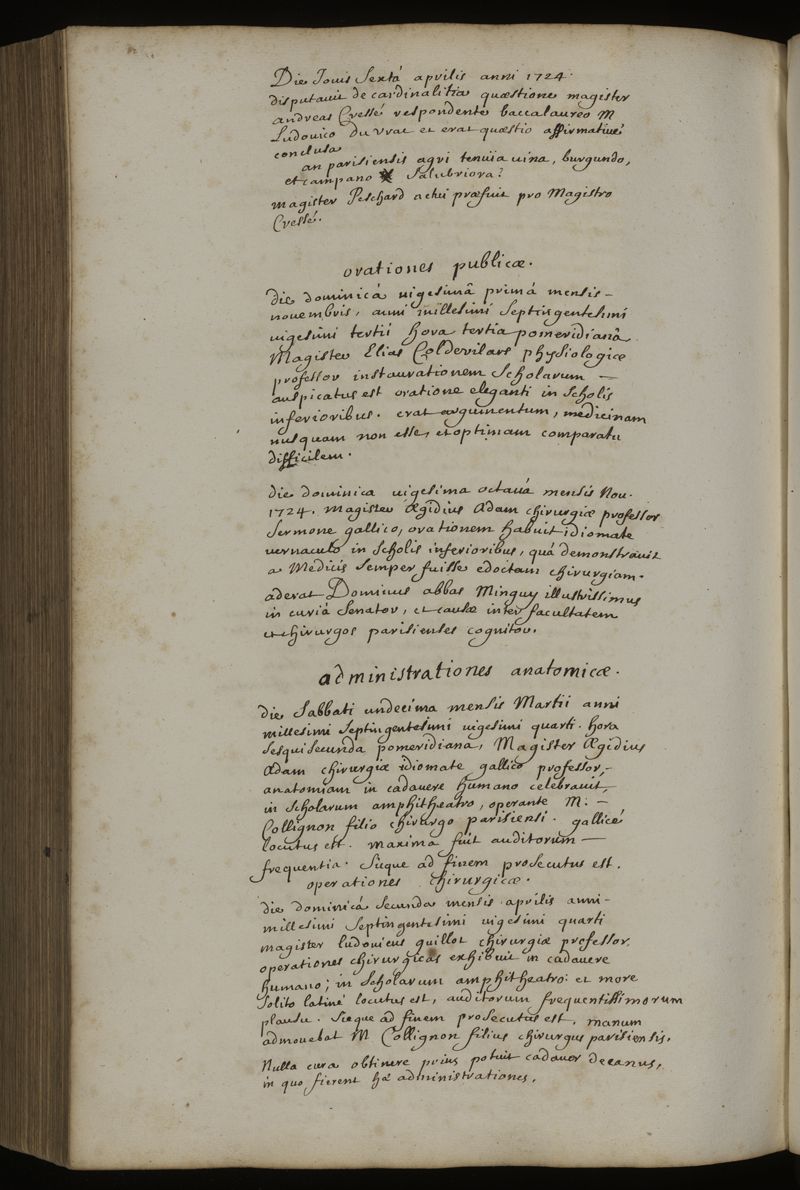 Die Jovis Sextâ aprilis anni 1724.
disputavit de cardinalitia quæstione magister
andreas Cressé respondente baccalaureo M
Ludovico du vrac et erat quæstio affirmativé
conclusa
an parisiensis agri tenuia vina, burgundo,
et campano salubriora?
magister Peschard actui præfuit pro Magistro
Cressé.
orationes publicæ.
die dominicâ vigesimâ primâ mensis
novembris, anni millesimi Septingentesimi
vigesimi tertii hora tertia pomeridianâ
Magister Elias Coldevilars physiologiæ
professor instaurationem Scholarum
auspicatus est oratione eleganti in Scholis
inferioribus. erat argumentum, medicinam
nusquam non esse, et optimam comparatu
difficilem.
die dominica vigesima octavâ mensis Nov.
1724. magister Ægidius Adam chirurgiæ professor
Sermone gallico, orationem habuit idiomate
vernaculo in Scholis inferioribus, quâ demonstravit
a Medicis Semper fuisse edoctam chirurgiam.
aderat Dominus abbas Minguy illustrissimus
in curiâ Senator, et causæ inter facultatem
et chirurgos parisienses cognitor.
administrationes anatomicæ.
die Sabbati undecima mensis Martii anni
millesimi Septingentesimi vigesimi quarti. hora
Sesquisecunda pomeridiana, Magister Ægidius
Adam chirurgiæ idiomate gallico professor,
anatomiam in cadavere humano celebravit,
in Scholarum amphitheatro, operante M.
Collignon filio chirurgo parisiensi. gallicé
locutus est. maxima fuit auditorum
frequentia. Sicque ad finem prosecutus est.
operationes chirurgicæ.
die dominicâ Secunda mensis aprilis anni
millesimi Septingentesimi vigesimi quarti
magister ludovicus guillot chirurgiæ professor
operationes chirurgicas exhibuit in cadavere
humano; in Scholarum amphitheatro: et more
Solito latiné locutus est, auditorum frequentissimorum
plausu. Sicque ad finem prosecutus est. manum
admovebat M Collignon filius chirurgus parisiensis.
Nulla cura obtinere prius potuit cadaver decanus,
in quo fierent hæ administrationes.